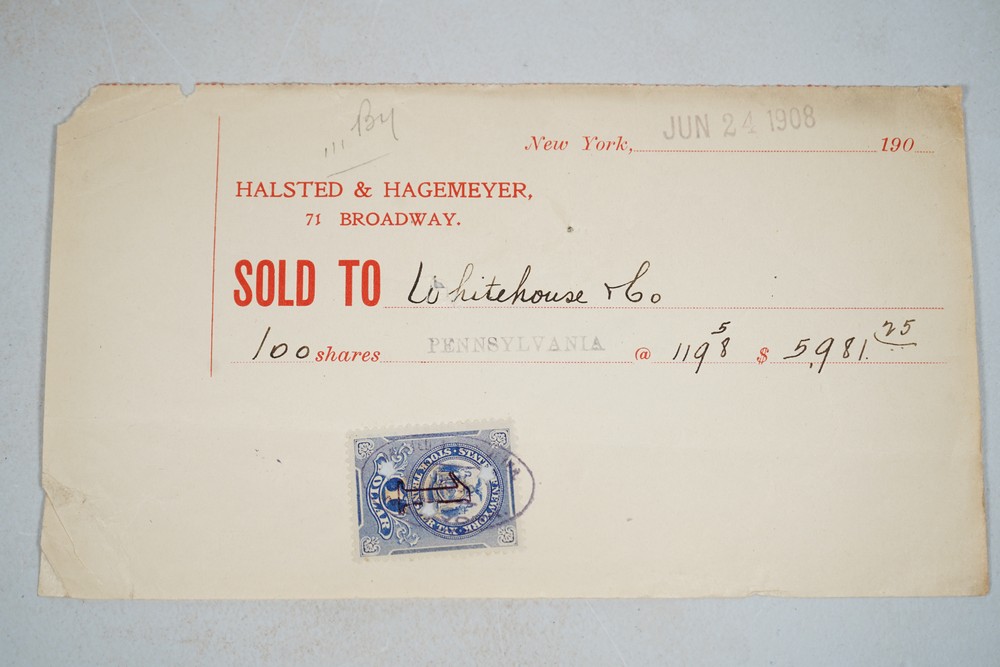 By
New York, JUN 24 1908 190
HALSTED & HAGEMEYER,
71 BROADWAY.
SOLD TO Whitehouse & Co
100 shares PENNSYLVANIA @ 119 5/8 $ 5,981.25
STATE OF NEW YORK
STOCK TRANSFER TAX
1
DOLLAR